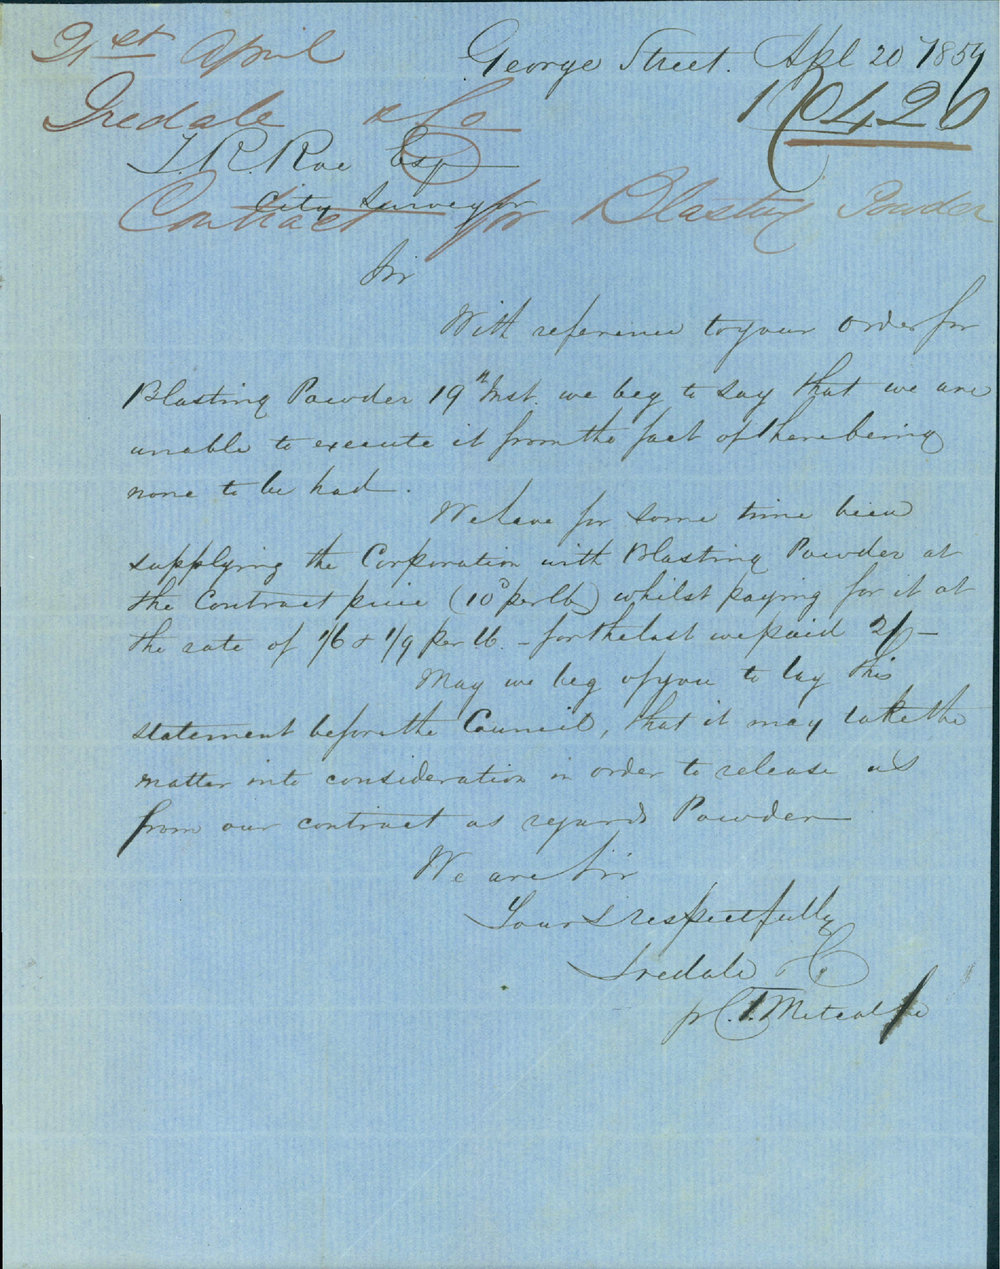 21st April
George Street. Apl 20 1859
Iredale & Co
420
T. R. Roe Esq
City Surveyor
Contract for Blasting Powder
Sir
With reference to your order for
Blasting Powder 19th Inst. we beg to say that we are
unable to execute it from the fact of there being
none to be had.
We have for some time been
supplying the Corporation with Blasting Powder at
the Contract price (10d per lb) whilst paying for it at
the rate of 1/6 & 1/9 per lb. - for the last we paid 2/-
May we beg of you to lay this
statement before the Council, that it may take the
matter into consideration in order to release us
from our contract as regards Powder
We are Sir
Yours respectfully
Iredale & Co
p C. T. Metcalfe